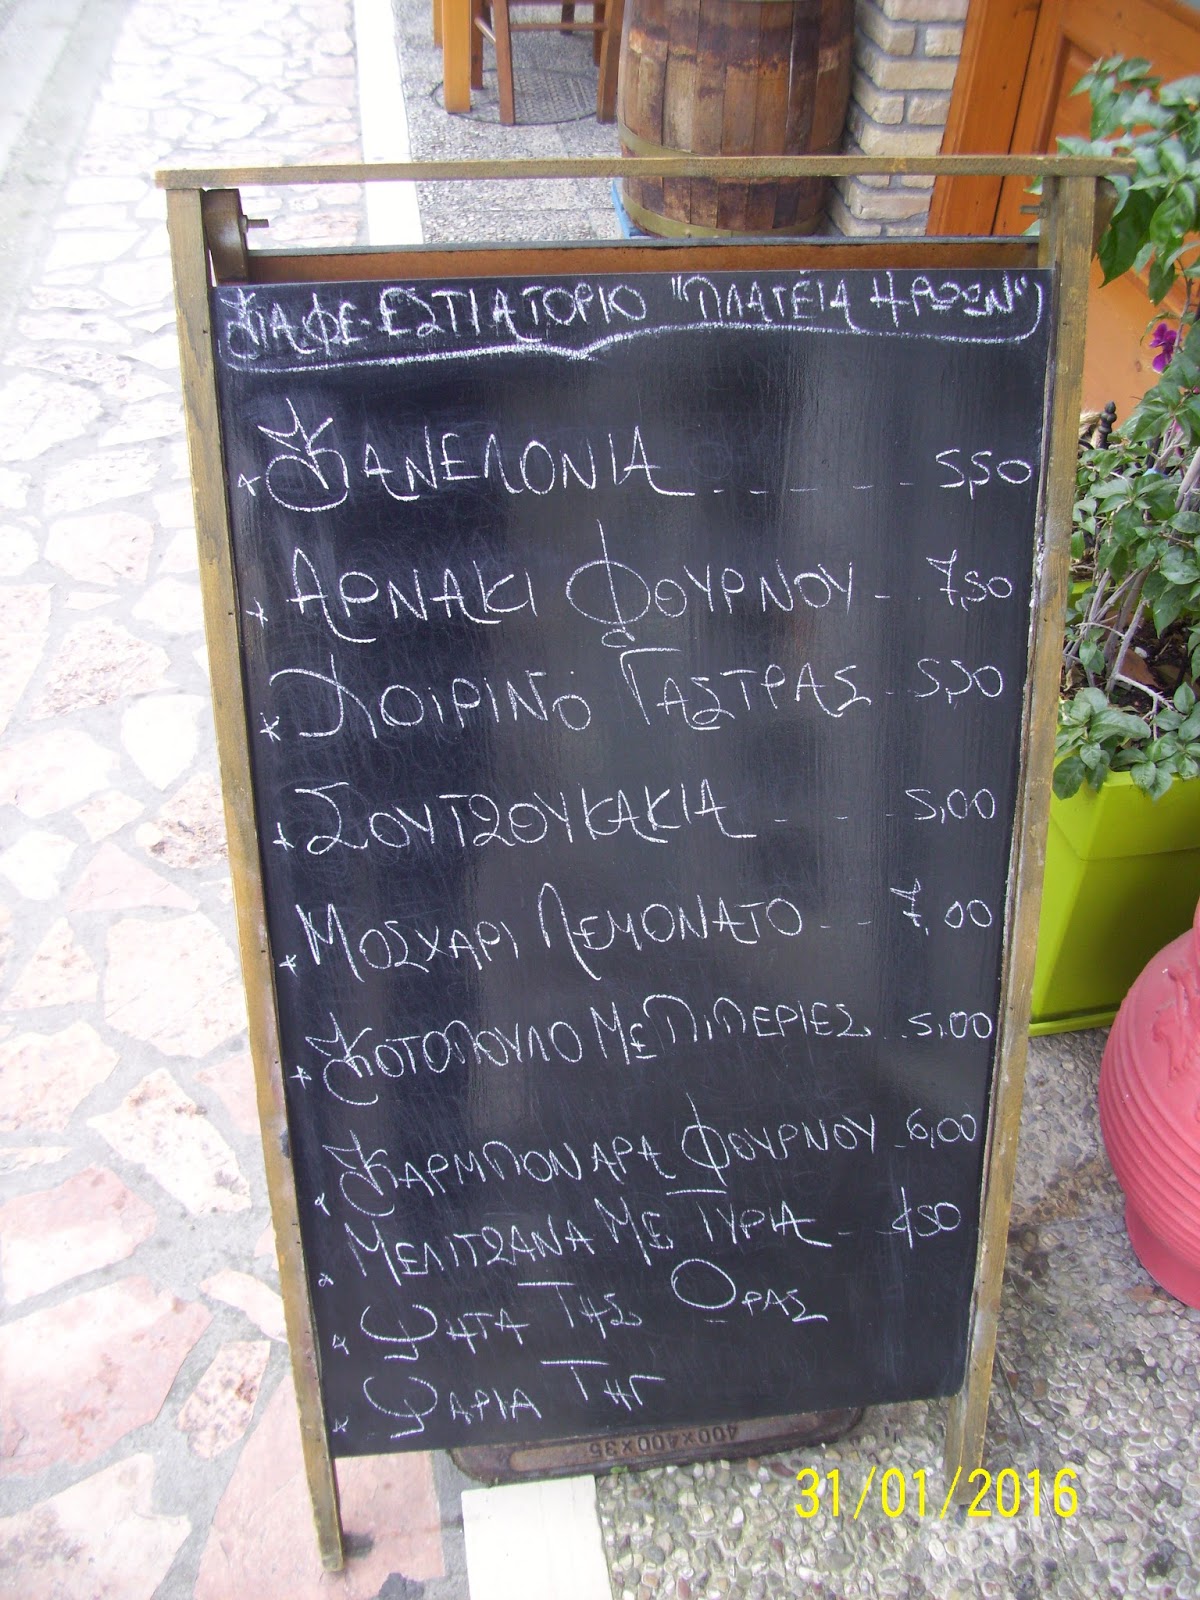 ΚΑΦΕ-ΕΣΤΙΑΤΟΡΙΟ "ΠΛΑΤΕΙΑ ΗΡΩΩΝ"
* ΚΑΝΕΛΟΝΙΑ . - - - - - 5,50
* ΑΡΝΑΚΙ ΦΟΥΡΝΟΥ - . 7,50
* ΧΟΙΡΙΝΟ ΓΑΣΤΡΑΣ . 5,50
* ΣΟΥΤΖΟΥΚΑΚΙΑ - - - . 5,00
* ΜΟΣΧΑΡΙ ΛΕΜΟΝΑΤΟ - - 7,00
* ΚΟΤΟΠΟΥΛΟ ΜΕ ΠΙΠΕΡΙΕΣ . . 5,00
* ΚΑΡΜΠΟΝΑΡΑ ΦΟΥΡΝΟΥ - 6,00
* ΜΕΛΙΤΖΑΝΑ ΜΕ ΤΥΡΙΑ - 4,50
* ΨΗΤΑ ΤΗΣ ΩΡΑΣ
* ΨΑΡΙΑ ΤΗΓ
400X400X35
31/01/2016